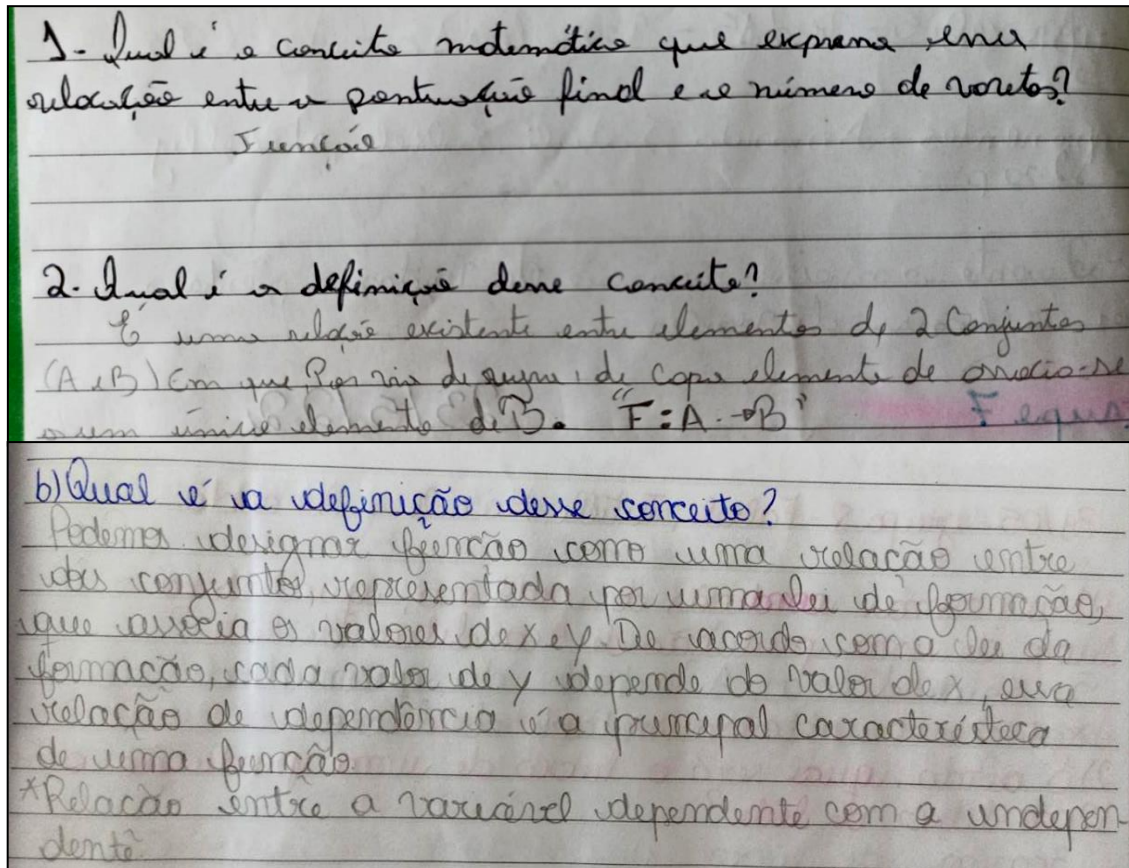 1- Qual é o conceito matemático que expressa essa
relação entre a pontuação final e o número de varetas?
Função
2- Qual é a definição desse conceito?
É uma relação existente entre elementos de 2 Conjuntos
(A e B) Em que, Por de que de elemento de associa-se
a um único elemento de B. "F:A→B"
b) Qual é a definição desse conceito?
Podemos designar função como uma relação entre
dois conjuntos, representada por uma lei de formação,
que associa os valores de x e y. De acordo com a lei da
formação, cada valor de y depende do valor de x, essa
relação de dependência é a principal característica
de uma função.
*Relação entre a variável dependente com a indepen-
dente